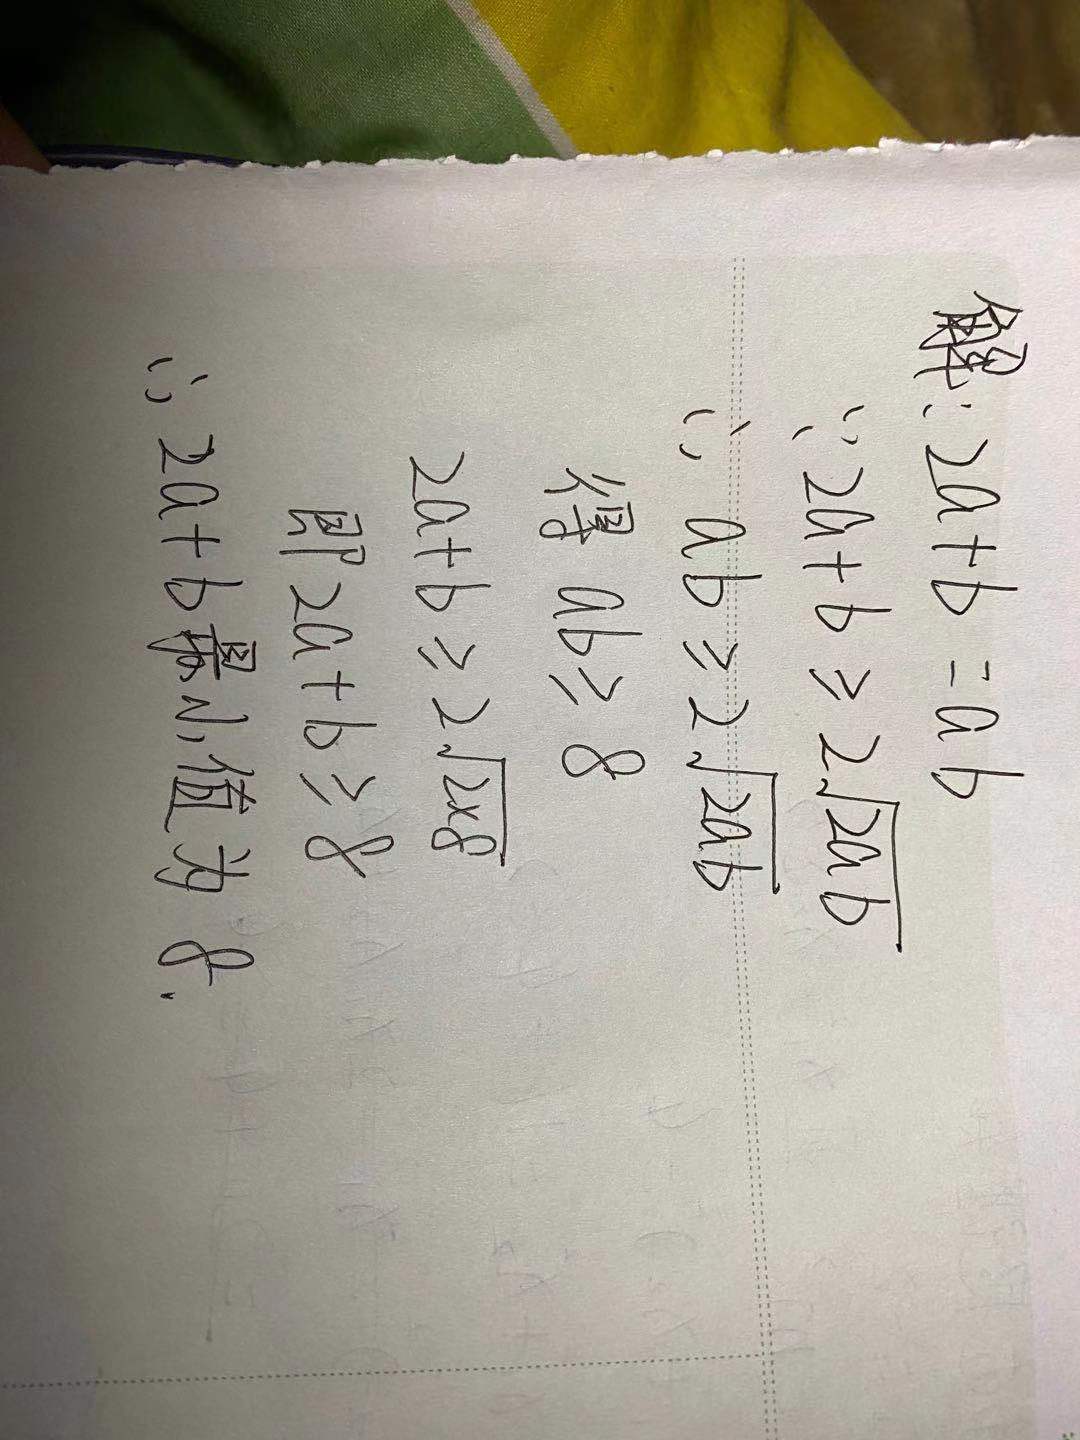 解：2a+b=ab
∵2a+b≥2√2ab
∴ab≥2√2ab
得ab≥8
2a+b≥2√2×8
即2a+b≥8
∴2a+b最小值为8.